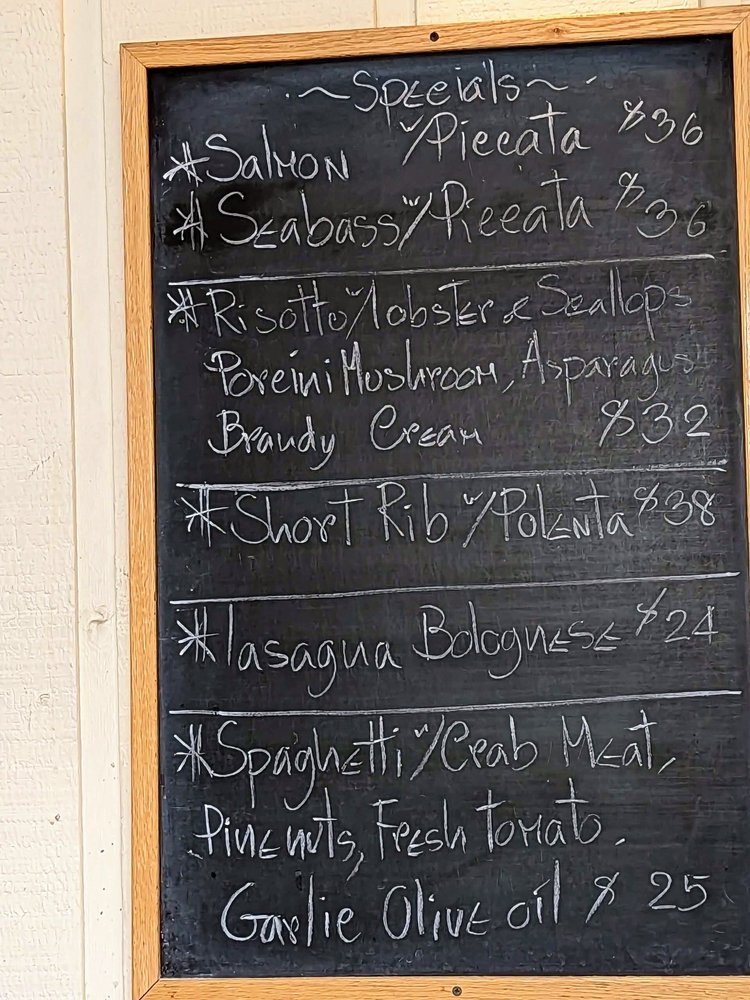 ~Specials~
*Salmon w/Piccata $36
*Seabass w/Piccata $36
*Risotto w/lobster & Scallops
Porcini Mushroom, Asparagus
Brandy Cream $32
*Short Rib w/Polenta $38
*lasagna Bolognese $24
*Spaghetti w/Crab Meat,
Pine nuts, Fresh tomato.
Garlic Olive oil $25